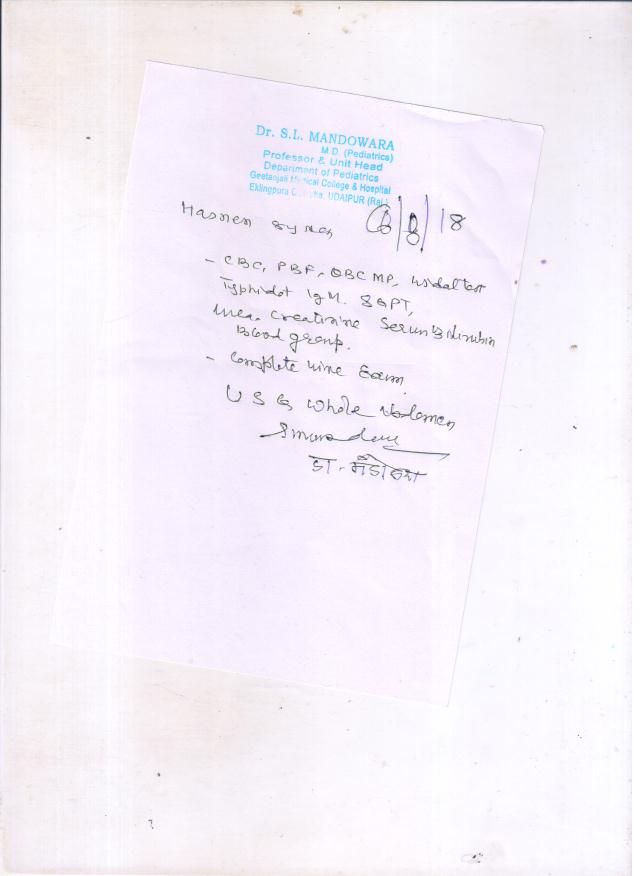 Dr. S.L. MANDOWARA
M.D. (Pediatrics)
Professor & Unit Head
Department of Pediatrics
Geetanjali Medical College & Hospital
Eklingpura Udaipur (Raj.)
18
- CBC, PBF, QBC MP, Widal test
Typhidot IgM. SGPT,
Urea. Creatinine Serum Bilirubin
Blood group.
- Complete Urine Exam
USG Whole Abdomen
डा.